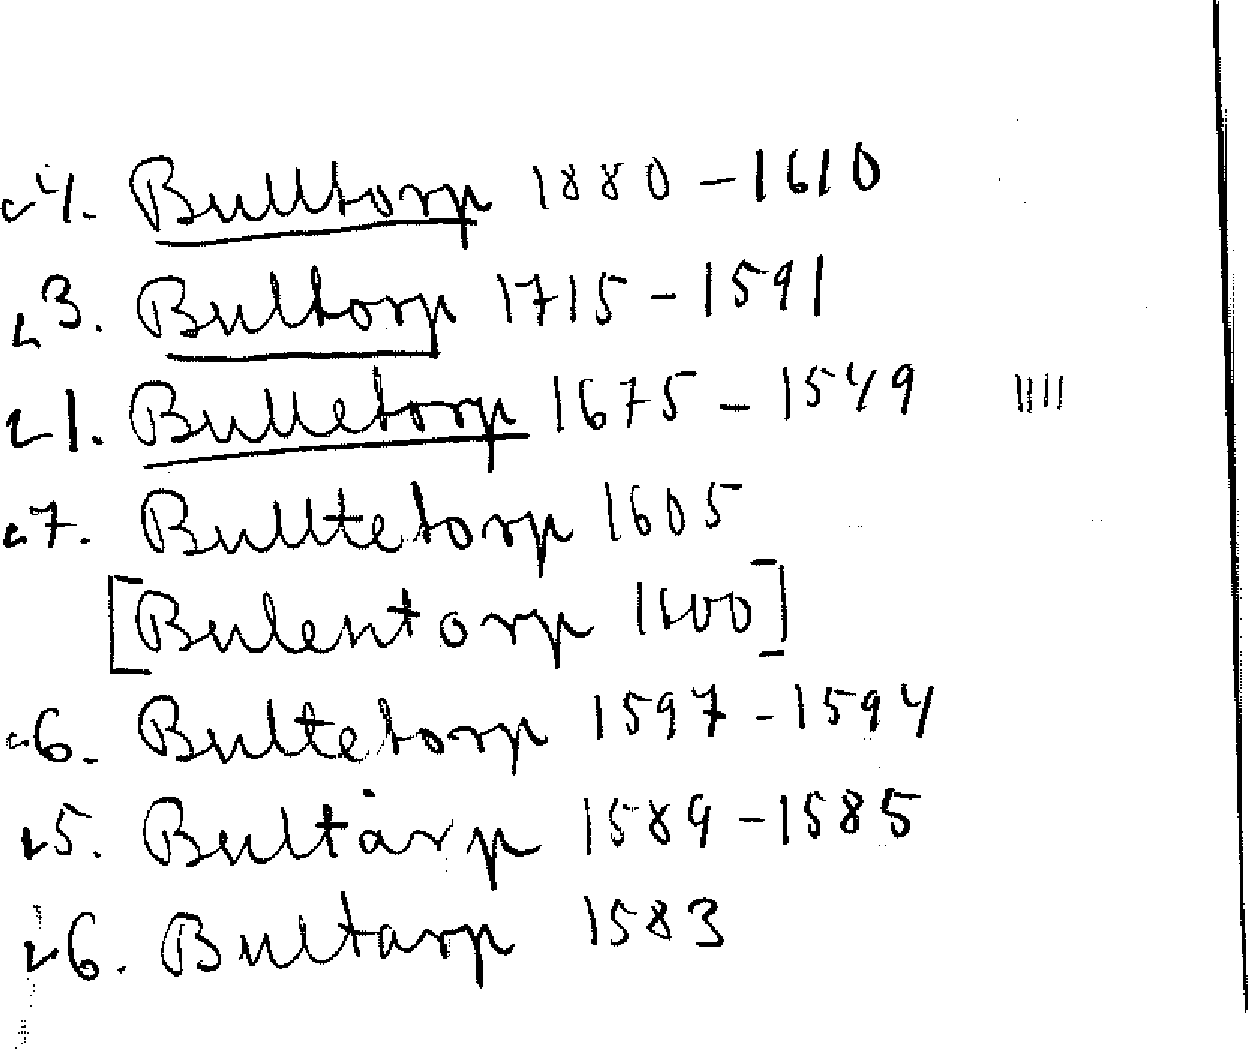 4. Bulltorp 1880-1610
3. Bultorp 1715-1591
1. Bulletorp 1675-1549
7. Bulltetorp 1605
[Bulentorp 1600]
6. Bultetorp 1597-1594
5. Bultårp 1589-1585
6. Bultarp 1583